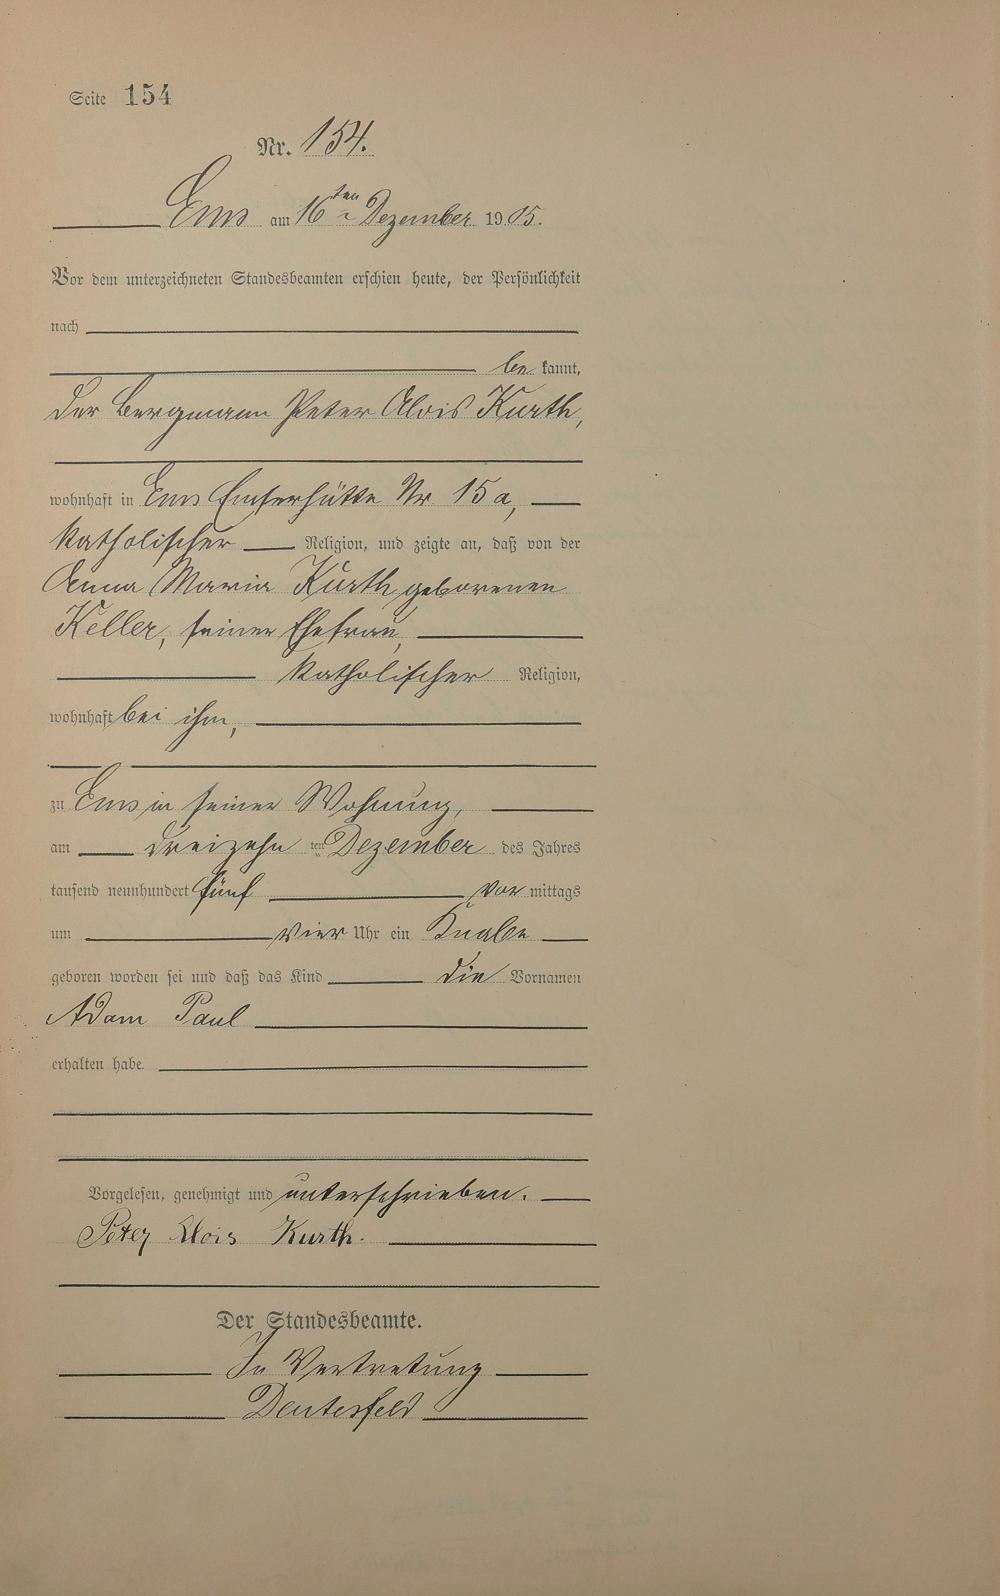 Seite 154
Nr. 154.
Ems am 16ten Dezember 1905.
Vor dem unterzeichneten Standesbeamten erschien heute, der Persönlichkeit
nach
be kannt,
der Bergmann Peter Alois Kurth,
wohnhaft in Ems Emserhütte Nr 15a,
katholischer Religion, und zeigte an, daß von der
Anna Maria Kurth geborenen
Keller, seiner Ehefrau,
katholischer Religion,
wohnhaft bei ihm,
zu Ems in seiner Wohnung,
am dreizehn ten Dezember des Jahres
tausend neunhundert fünf vor mittags
um vier Uhr ein Knabe
geboren worden sei und daß das Kind die Vornamen
Adam Paul
erhalten habe.
Vorgelesen, genehmigt und unterschrieben.
Peter Alois Kurth.
Der Standesbeamte.
In Vertretung
Deutesfeld